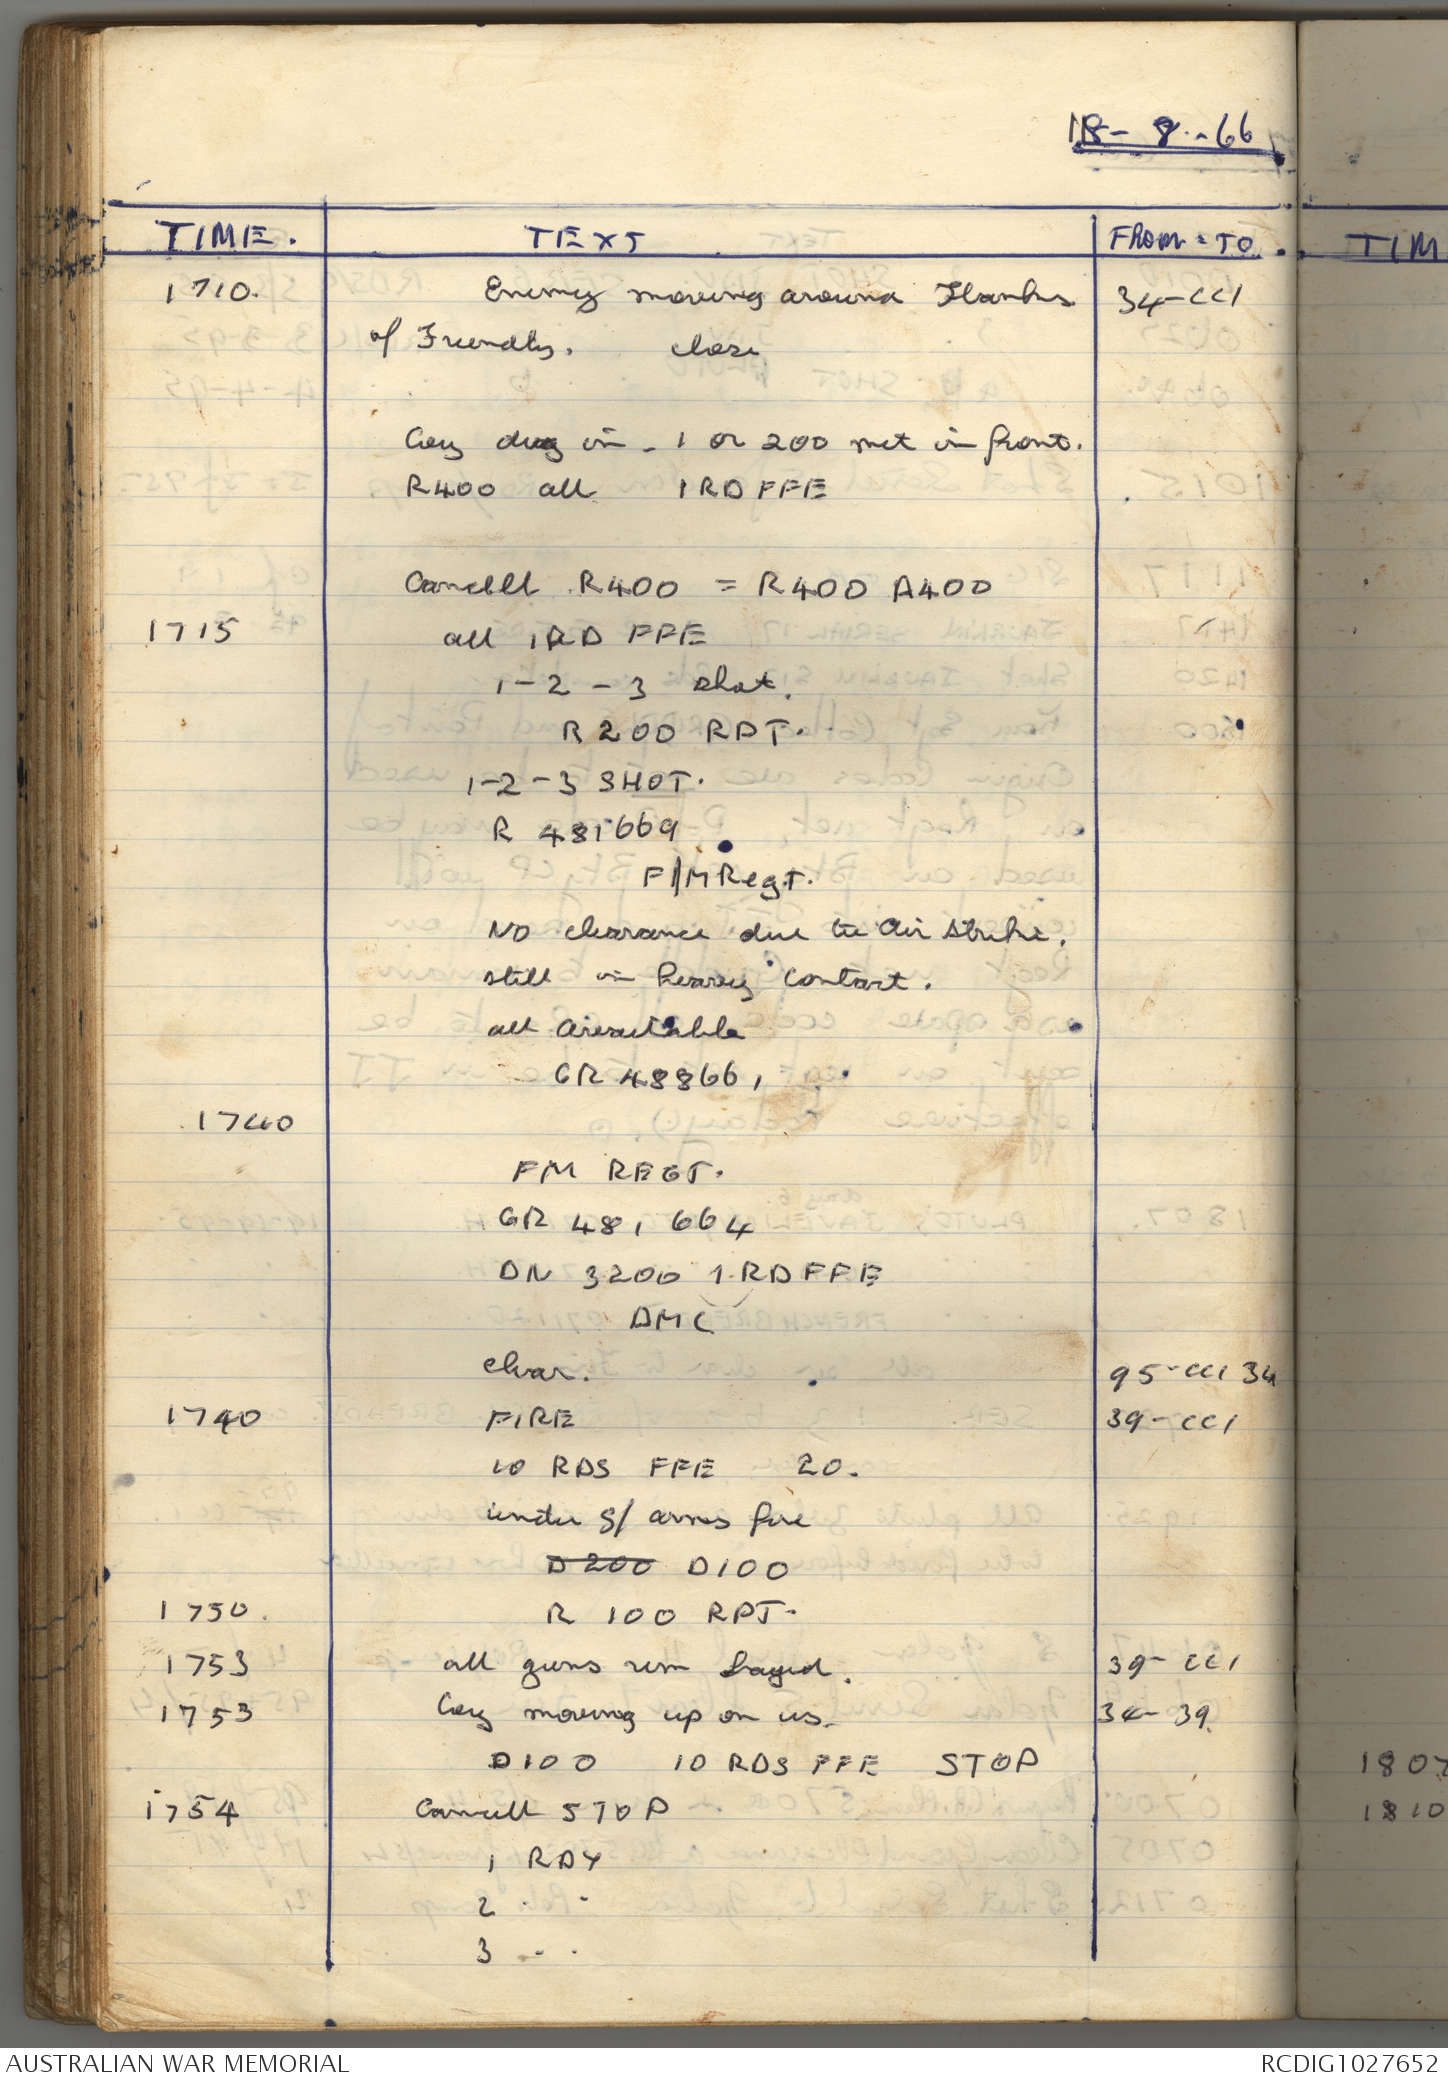 18-8-66
TIME. TEXT FROM = TO. TIM
1710. Enemy moving around Flanks 34-CC1
of Friendly. close
Coy dug in - 1 or 200 met in front.
R400 all 1 RD FFE
Cancell R400 = R400 A400
1715 all 1RD FFE
1-2-3 shot.
R 200 RPT.
1-2-3 SHOT.
R 481669
F/M Regt.
NO clearance due to Air Strike.
still in heavy contact.
all available
GR 488661
1740
FM REGT.
GR 481664
DN 3200 1 RD FFE
AMC
clear. 95-CC1 34
1740 FIRE 39-CC1
10 RDS FFE 20.
under S/ arms fire
D 200 D100
1750. R 100 RPT.
1753 all guns rem layed. 39-CC1
1753 Coy moving up on us. 34-39.
D100 10 RDS FFE STOP 1807
1754 Cancell STOP 1810
1 RDY
2 " "
3 " "
AUSTRALIAN WAR MEMORIAL RCDIG1027652